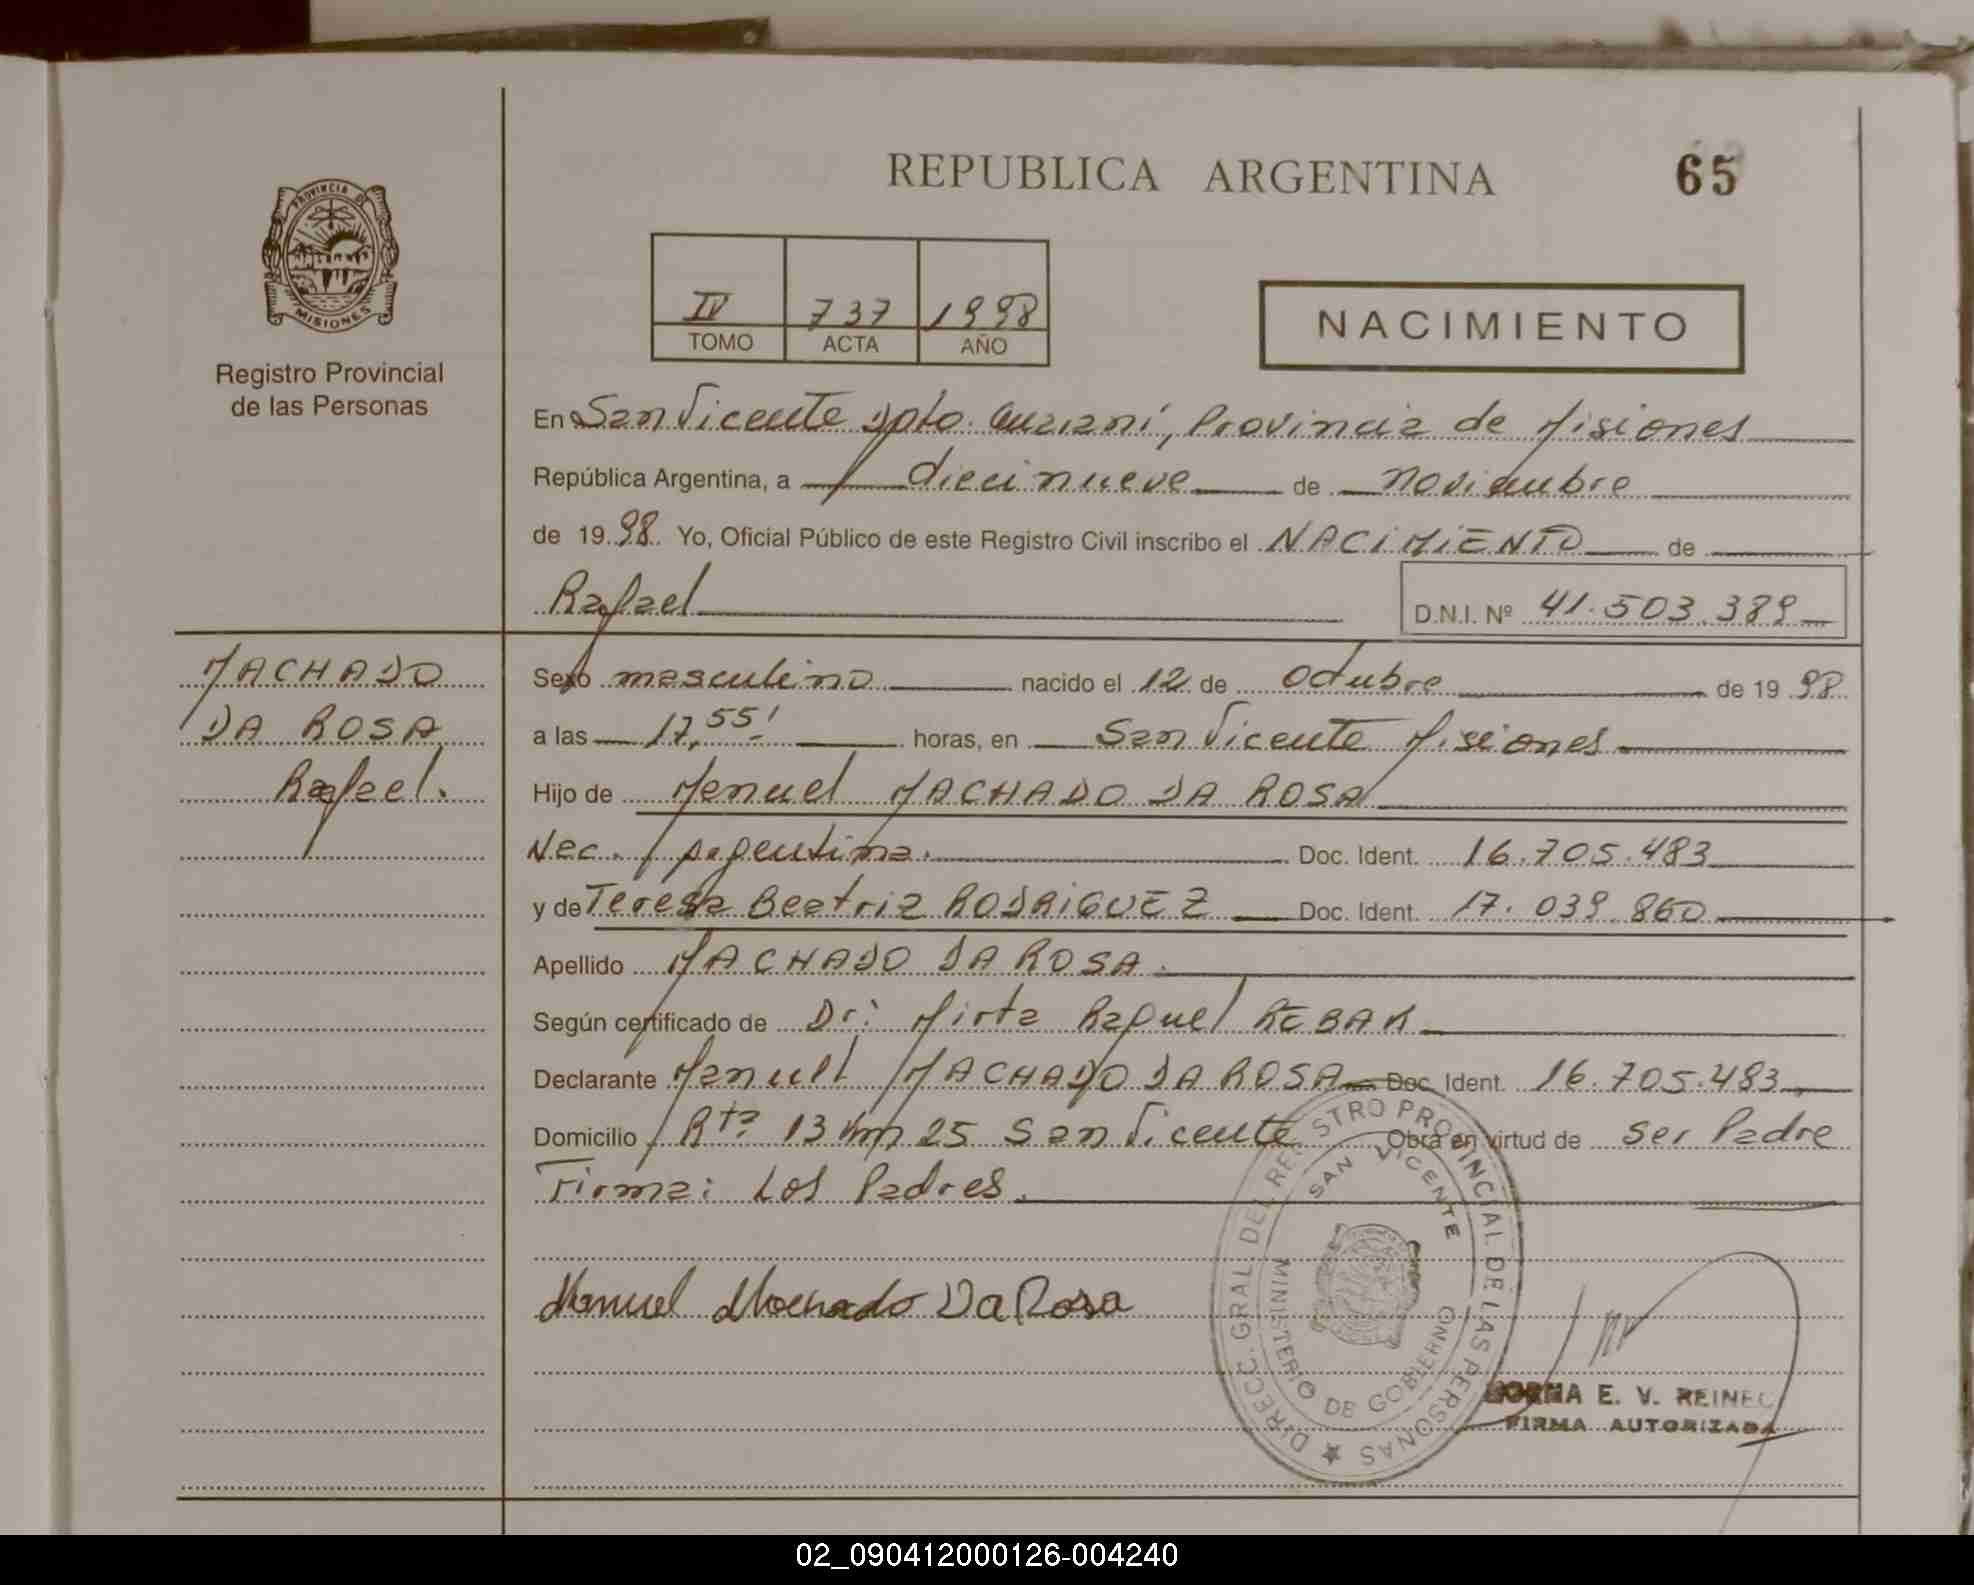 REPUBLICA ARGENTINA
65
PROVINCIA DE
MISIONES
Registro Provincial
de las Personas
IV 737 1998
TOMO ACTA AÑO
NACIMIENTO
En San Vicente Dpto. Guaraní, Provincia de Misiones
República Argentina, a diecinueve de noviembre
de 1998 Yo, Oficial Público de este Registro Civil inscribo el NACIMIENTO de
Rafael
D.N.I. Nº 41.503.389
MACHADO
DA ROSA
Rafael.
Sexo masculino nacido el 12 de Octubre de 1998
a las 17,55' horas, en San Vicente Misiones
Hijo de Manuel MACHADO DA ROSA
Nac. Argentina. Doc. Ident. 16.705.483
y de Teresa Beatriz RODRIGUEZ Doc. Ident. 17.039.860
Apellido MACHADO DA ROSA.
Según certificado de Dr: Mirta Raquel
Declarante Manuel MACHADO DA ROSA Doc. Ident. 16.705.483
Domicilio Rta 13 Km 25 San Vicente Obra en virtud de ser Padre
Firma: Los Padres.
Manuel Machado Da Rosa
DIRECC. GRAL. DEL REGISTRO PROVINCIAL DE LAS PERSONAS
SAN VICENTE
MINISTERIO DE GOBIERNO
E. V. REINEC
FIRMA AUTORIZADA
02_090412000126-004240